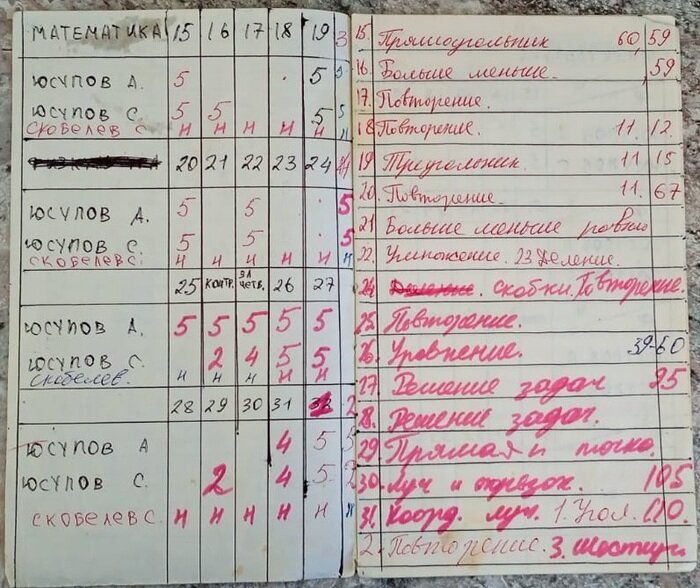 МАТЕМАТИКА 15 16 17 18 19 3
ЮСУПОВ А. 5 5 5
ЮСУПОВ С. 5 5 5 5
СКОБЕЛЕВ С. Н Н Н Н Н Н
20 21 22 23 24
ЮСУПОВ А. 5 5 5
ЮСУПОВ С. 5 5 5
СКОБЕЛЕВ С. Н Н Н Н Н Н
25 КОНТР. ЗА ЧЕТВ. 26 27
ЮСУПОВ А. 5 5 5 5 5
ЮСУПОВ С. 2 4 5 5
СКОБЕЛЕВ. Н Н Н Н Н
28 29 30 31 2
ЮСУПОВ А 4 5 5
ЮСУПОВ С. 2 4 5 2
СКОБЕЛЕВ С. Н Н Н Н Н Н
15. Прямоугольник 60, 59
16. Больше меньше. , 59
17. Повторение.
18 Повторение. 11. 12.
19 Треугольник. 11. 15
20. Повторение. 11. 67
21 Больше меньше равно
22. Умножение. 23 Деление.
24 Деление. скобки. Повторение.
25. Повторение.
26. Уровнение. 39-60
27. Решение задач 85
28. Решение задач.
29. Прямая и точка.
30. Луч и отрезок. 105
31. Коорд. луч. 1. Угол. 110.
2. Повторение. 3. Шестиуг